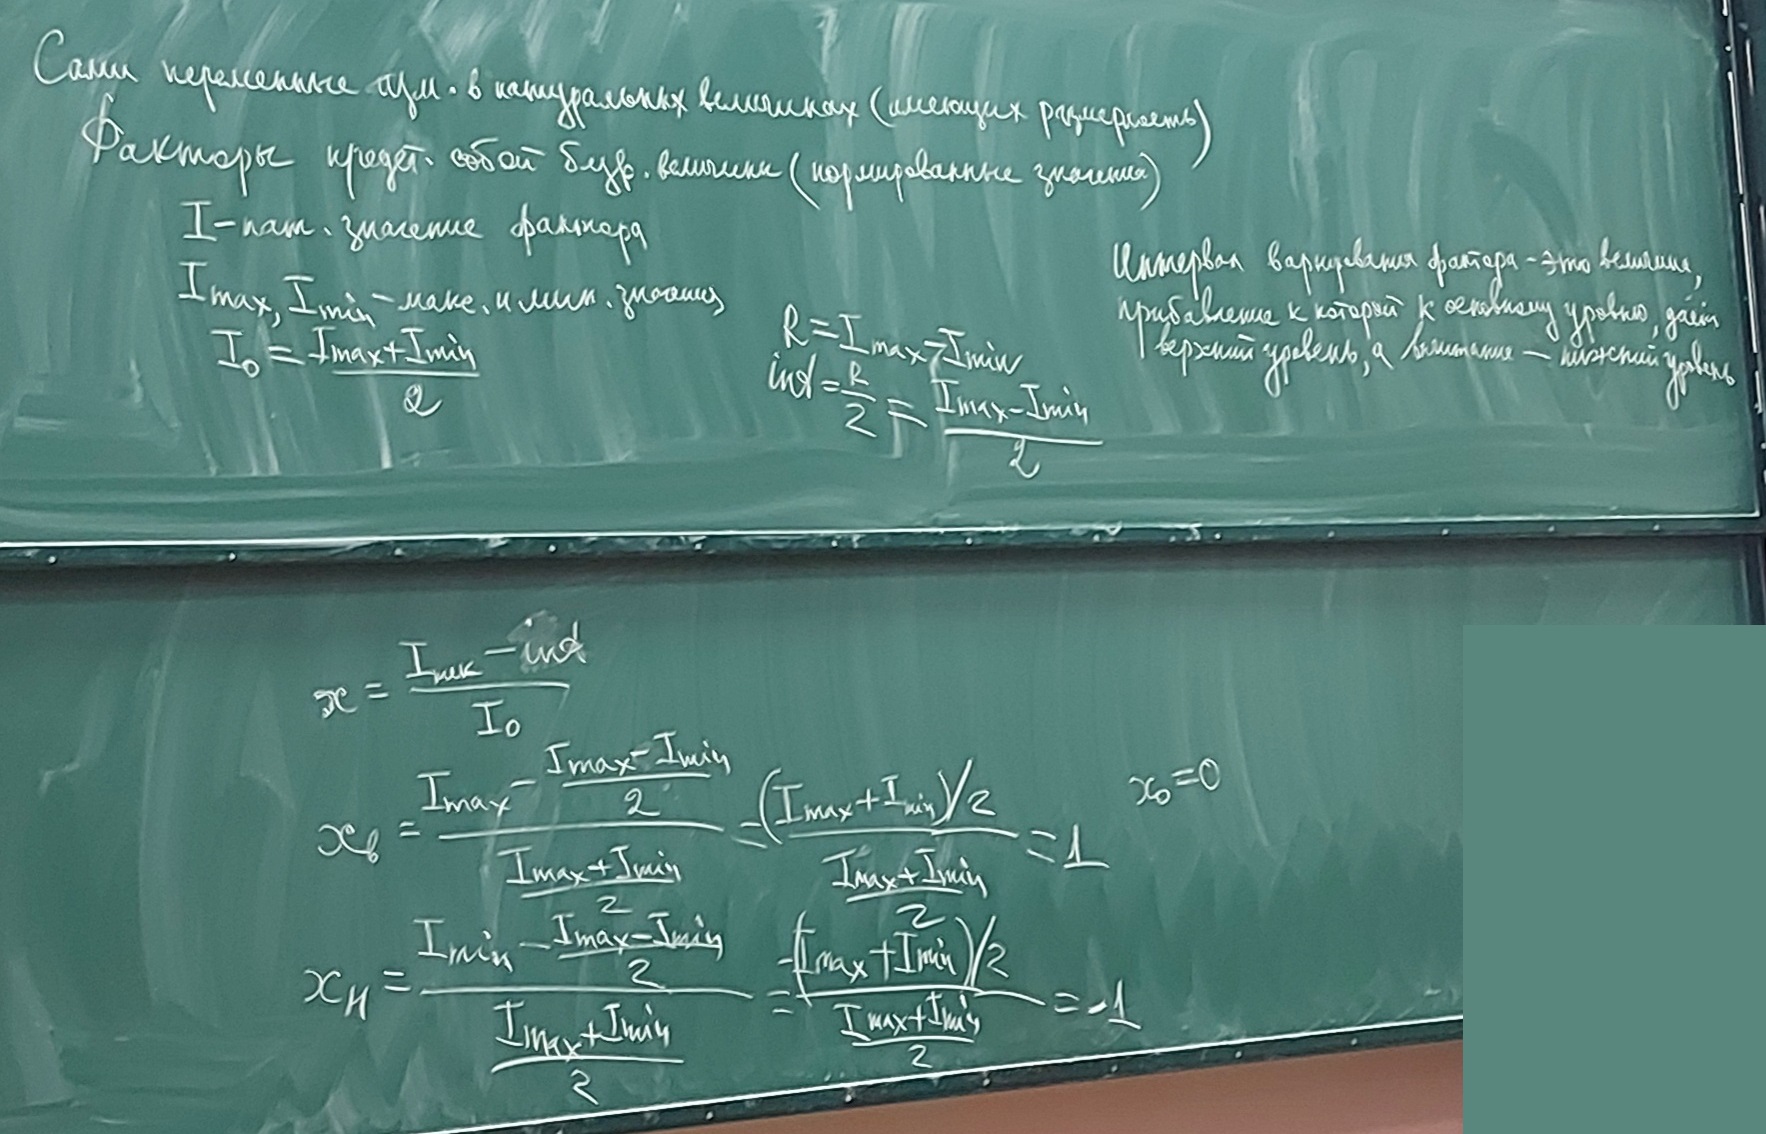 Сами переменные изм. в натуральных величинах (имеющих размерность)
Факторы предст. собой безр. величины (нормированные значения)
I - нат. значение фактора
I_max, I_min - макс. и мин. значения
I_0 = (I_max + I_min) / 2
R = I_max - I_min
int = R/2 = (I_max - I_min) / 2
Интервал варьирования фактора - это величина,
прибавление к которой к основному уровню, даёт
верхний уровень, а вычитание - нижний уровень
x = (I_тек - int) / I_0
x_в = (I_max - (I_max - I_min)/2) / ((I_max + I_min)/2) = ((I_max + I_min)/2) / ((I_max + I_min)/2) = 1
x_0 = 0
x_н = (I_min - (I_max - I_min)/2) / ((I_max + I_min)/2) = (-(I_max + I_min)/2) / ((I_max + I_min)/2) = -1